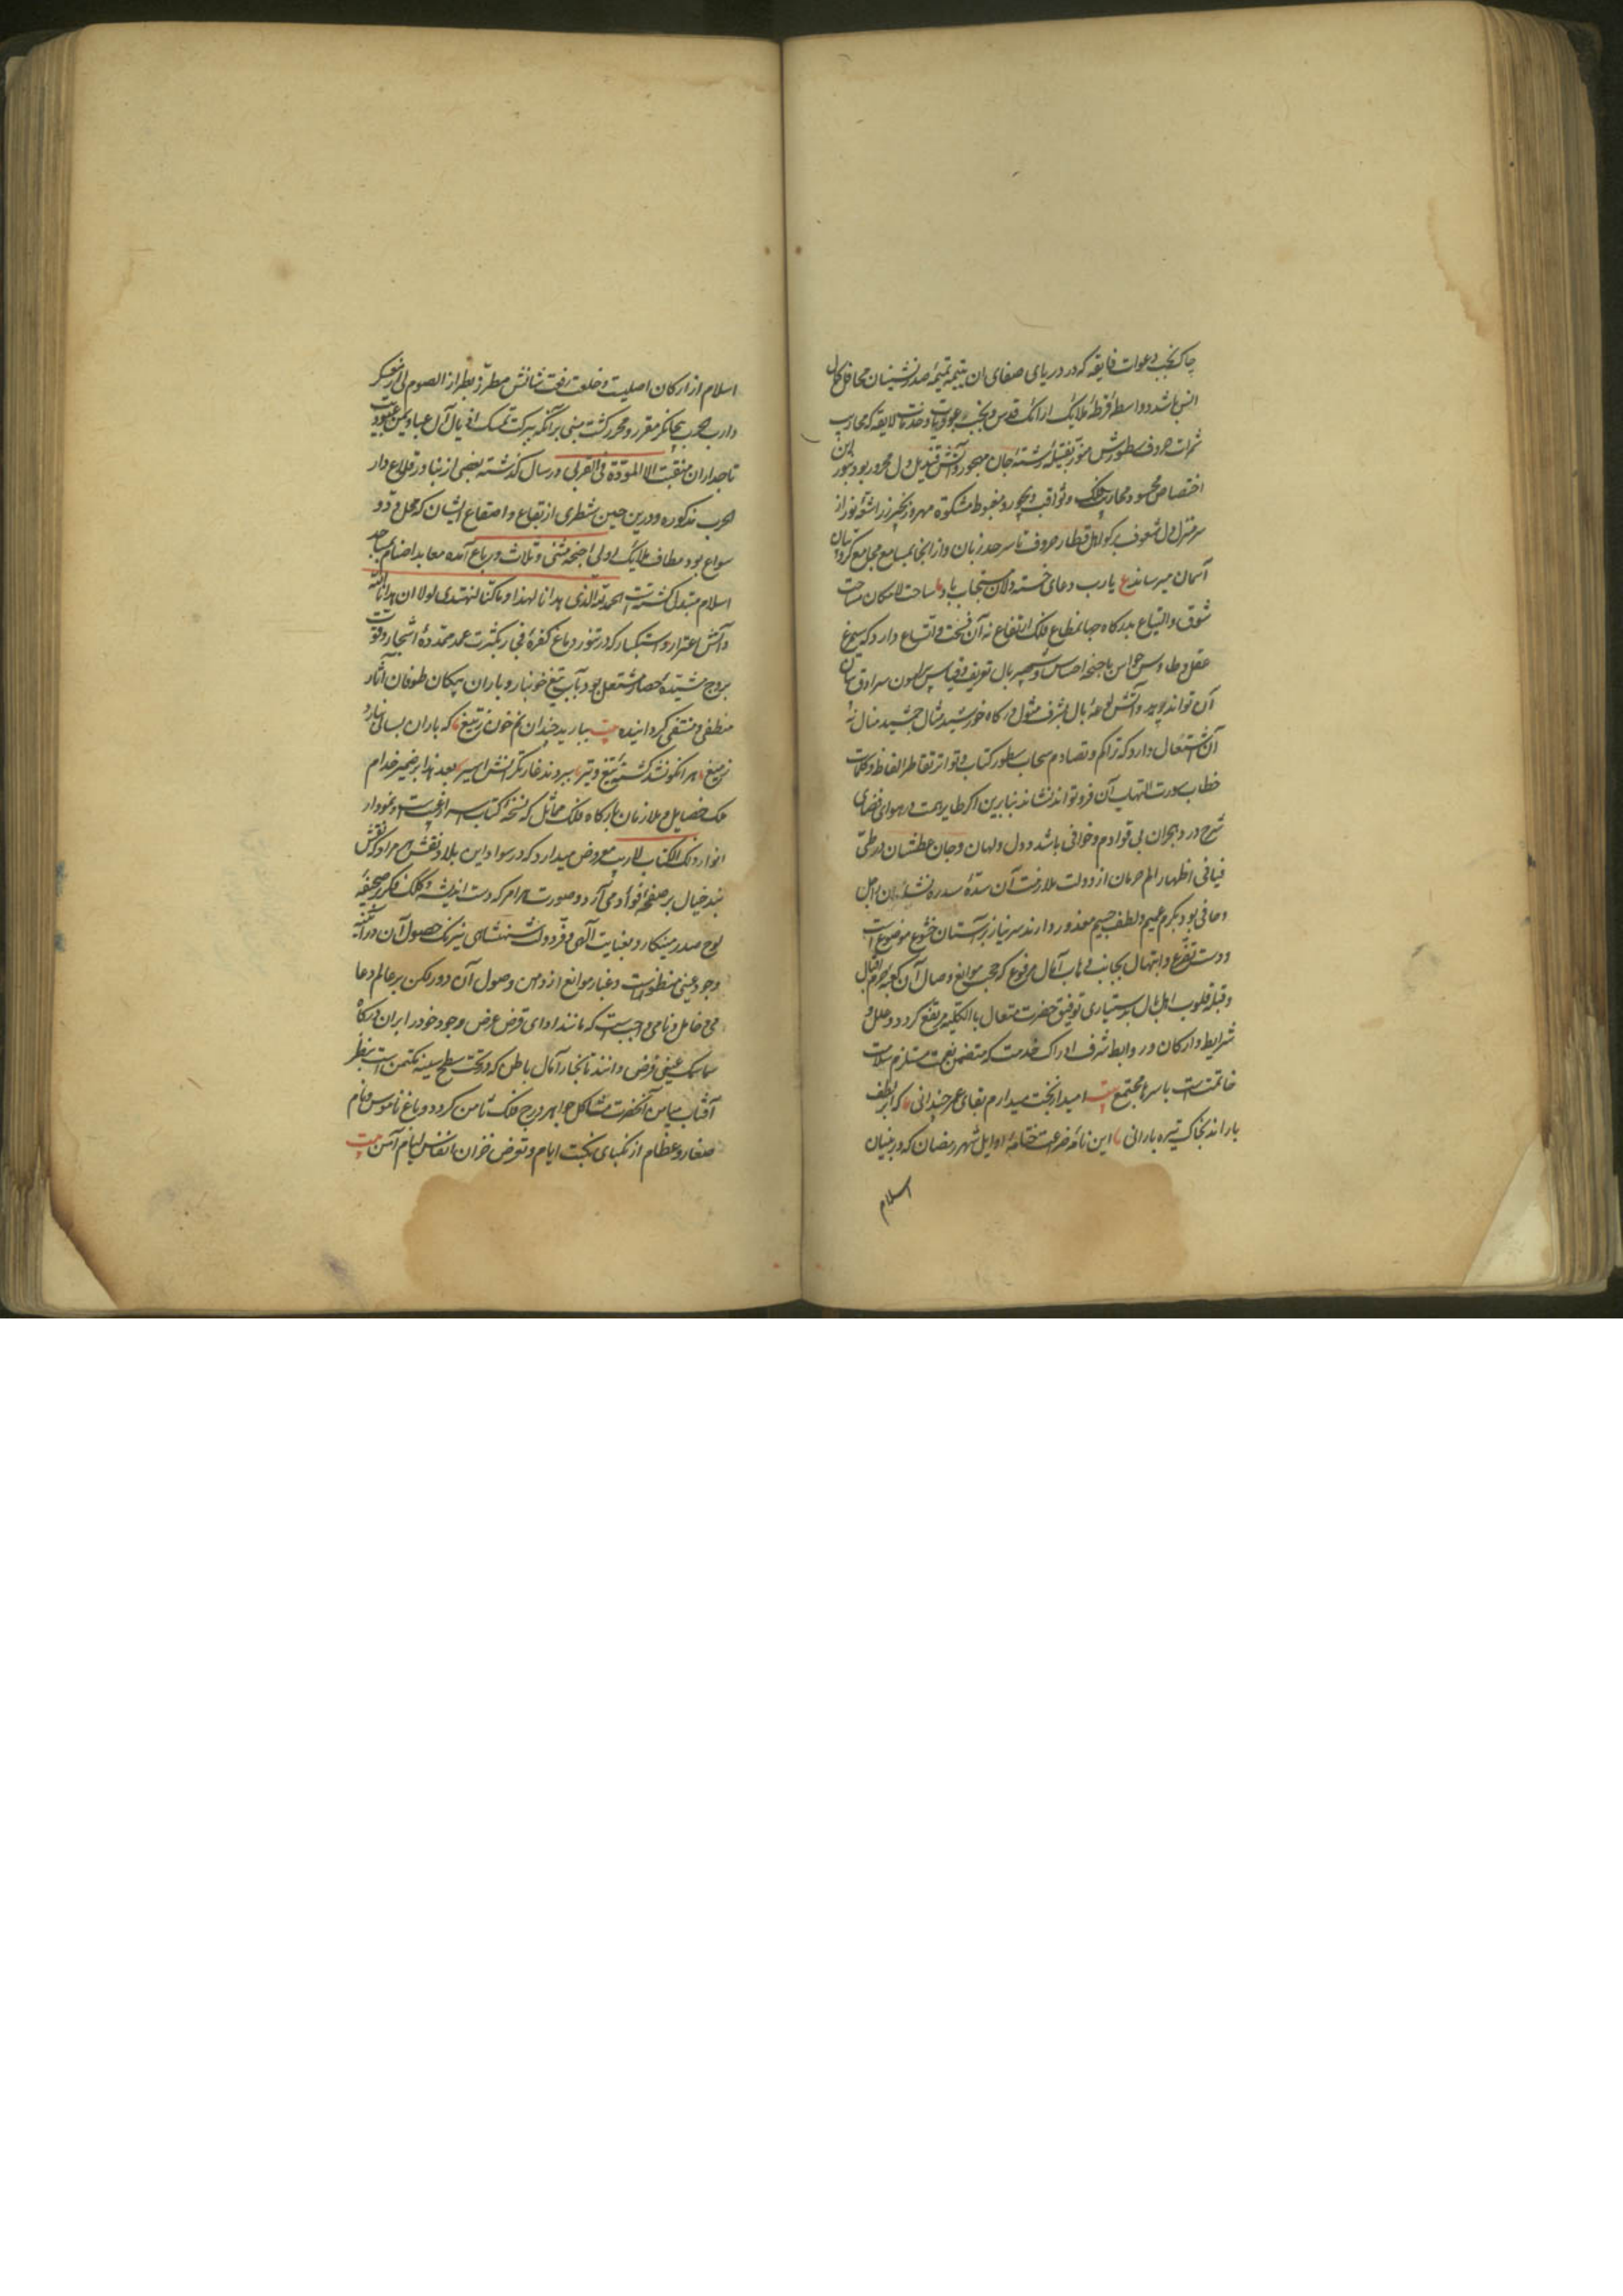 چاک نجیب دعوات فایقه که در دریای صفای آن یتیمه تمیمه صدرنشینان محافل کمال
انس باشد و واسطه قرطه ملایک ارائک قدس و نجیب عبودیات و خدمات لایقه که محاریب
ثمرات حروف سطورش منور بفتیله رشته جان مهجور و آتش قندیل دل محرور بود و بنور این
اختصاص محسود محاریب فلک و ثواقب و نجوم و مغبوط مشکوة مهر و زنجیر زر اشعه نور از
سر منزل دل مشغوف بر کواهل قطار حروف تا سر حد زبان و از آنجا بمسامع مجامع کروبیان
آسمان میرساند ع یا رب دعای خسته دلان مستجاب باد ساحت لامکان مساحت
شوق و التیاع بدرکاه جهانمطاع فلک ارتفاع نه آن فسحت و اتساع دارد که سیمرغ
عقل و طاوس حواس باجنحه احساس و شهپر بال تعریف و قیاس پیرامون سرادق بیان
آن تواند پرید و آتش لوعه بال بشرف مثول درکاه خورشید مثال جمشید منال نه
آن اشتعال دارد که تراکم و تصادم سحاب سطور کتاب و تواتر تقاطر الفاظ و کلمات
خطاب سورت التهاب آن فرو تواند نشاند بنابرین اکر طایر همت در هوای فضای
شرح درد هجران بی قوادم و خوافی باشد و دل ولهان و جان عطشان در طی
فیافی اظهار الم حرمان از دولت ملازمت آن سده سدره نشان راجل
و حافی بود بکرم عمیم و لطف جسیم معذور دارند سر نیاز بر آستان خشوع موضوع است
و دست تضرع و ابتهال بجانب وهاب آمال مرفوع که حجب موانع وصال آن کعبه حرم اقبال
و قبله قلوب اهل بال بدستیاری توفیق حضرت متعال بالکلیه مرتفع کردد و علل و
شرایط و ارکان و روابط شرف ادراک خدمت که متضمن نعمت مستلزم سلامت
خاتمتست باسرها مجتمع بیت امید از بخت میدارم بقای عمر چندانی کز ابر لطف
باراند بخاک تیره بارانی این نامه ضراعت ختامه اوایل شهر رمضان که در بنیان
اسلام
اسلام از ارکان اصلیست و خلعت رفعت شانش مطرز بطراز الصوم لی از معسکر
دار حرب بچاکر مقرر و محرر کشت مبنی بر آنکه ببرکت تمسک اذیال آل عبا و یمن عبودیت
تاجداران منقبت الا المودة فی القربی در سال کذشته بعضی از بنادر و قلاع دار
الحرب مذکوره و درین حین شطری از بقاع و اصقاع ایشان که محل ود و
سواع بود مطاف ملایک اولی اجنحة مثنی و ثلاث و رباع آمده معابد اصنام بمساجد
اسلام متبدل کشته است الحمد لله الذی هدانا لهذا و ما کنا لنهتدی لولا ان هدانا الله
و آتش اغترار و استکبار که در تنور دماغ کفره فجار بکثرت عدد ممدده اشجار و قوت
بروج مشیده حصار مشتعل بود بآب تیغ خونبار و باران پیکان طوفان آثار
منطفی و منتفی کردانیده بیت ببارید چندان نم خون ز تیغ که باران بسالی نبارد
ز میغ هر انکو نشد کشته تیغ و تیر ببردند غارتکرانش اسیر بعد هذا بر ضمیر خدام
ملک خصایل و ملازمان بارکاه فلک مماثل که نسخه کتاب سرایر غیبست و نمودار
انوار ذلک الکتاب لا ریب معروض میدارد که در سواد این بلاد نقش هر مراد که نقش
بند خیال بر صفحه فؤاد می آرد و صورت هر امر که دست اندیشه و کلک فکر بر صحیفه
لوح صدر مینکارد بعنایت الهی و فر دولت شهنشاهی نیرنک حصول آن در آینه
وجود عینی منظور است و غبار موانع از دامن وصول آن دور لکن بر عالم دعا
می خامل و نامی واجبست که مانند ادای قرض عرض وجود خود را بران درکاه
سماسمک عینی فرض دانند تا بخار آمال باطن که در تحت سطح سینه مکتمن است بنظر
آفتاب میامن آنحضرت مشاکل جواهر درج فلک ثامن کردد و باغ ناموس و نام
صغار و عظام از نکبای نکبت ایام و تعرض خزان انفاس لیام آمن بیت